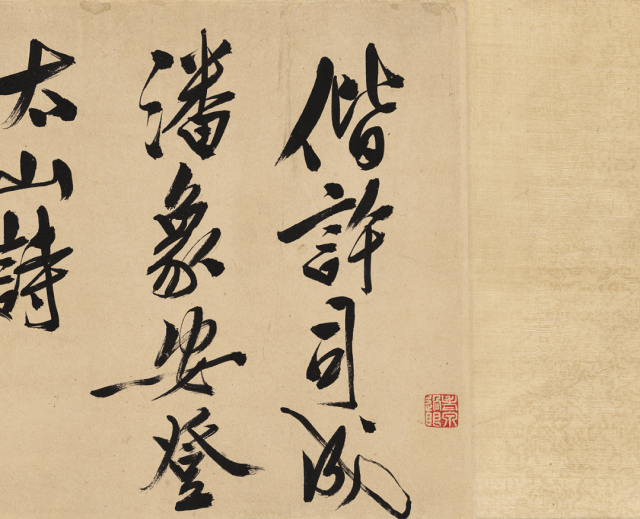 偕許司成
潘象安登
太山詩